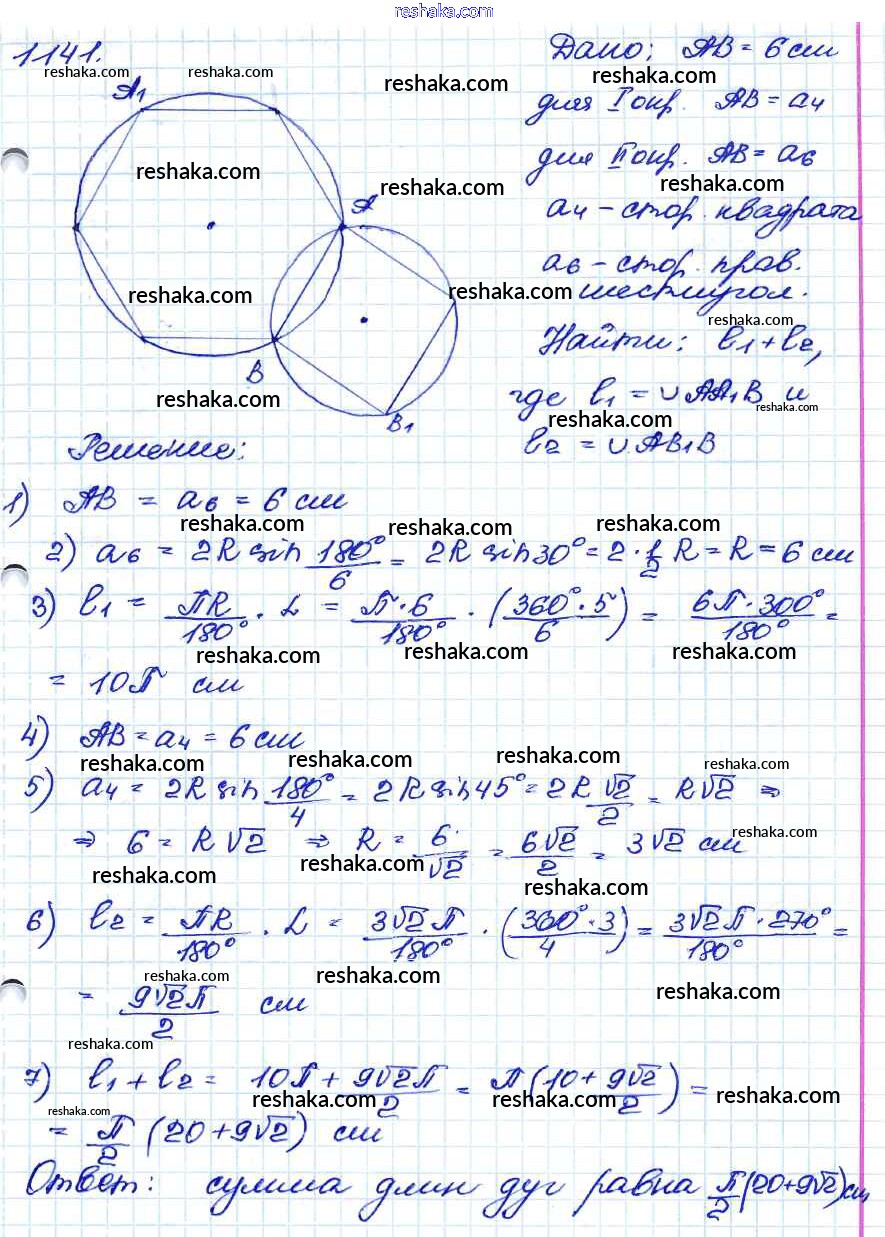 reshaka.com
1141.
Дано: AB = 6 см
reshaka.com reshaka.com reshaka.com reshaka.com
A₁
для I окр. AB = a₄
для II окр. AB = a₆
reshaka.com reshaka.com reshaka.com
A
a₄ – стор. квадрата
a₆ – стор. прав.
reshaka.com reshaka.com шестиугол.
reshaka.com
Найти: l₁ + l₂,
B
где l₁ = ∪ AA₁B и
reshaka.com reshaka.com reshaka.com
B₁
l₂ = ∪ AB₁B
Решение:
1) AB = a₆ = 6 см
reshaka.com reshaka.com reshaka.com
2) a₆ = 2R sin 180°/6 = 2R sin 30° = 2 · 1/2 R = R = 6 см
3) l₁ = ПR/180° · L = П · 6/180° · (360° · 5/6) = 6П · 300°/180° =
reshaka.com reshaka.com reshaka.com
= 10П см
4) AB = a₄ = 6 см
reshaka.com reshaka.com reshaka.com reshaka.com
5) a₄ = 2R sin 180°/4 = 2R sin 45° = 2R √2/2 = R√2 ⇒
⇒ 6 = R√2 ⇒ R = 6/√2 = 6√2/2 = 3√2 см
reshaka.com
reshaka.com reshaka.com reshaka.com
6) l₂ = ПR/180° · L = 3√2П/180° · (360° · 3/4) = 3√2П · 270°/180° =
reshaka.com reshaka.com reshaka.com
= 9√2П/2 см
reshaka.com
7) l₁ + l₂ = 10П + 9√2П/2 = П(10 + 9√2/2) =
reshaka.com reshaka.com reshaka.com reshaka.com
= П/2 (20 + 9√2) см
Ответ: сумма длин дуг равна П/2(20+9√2)см